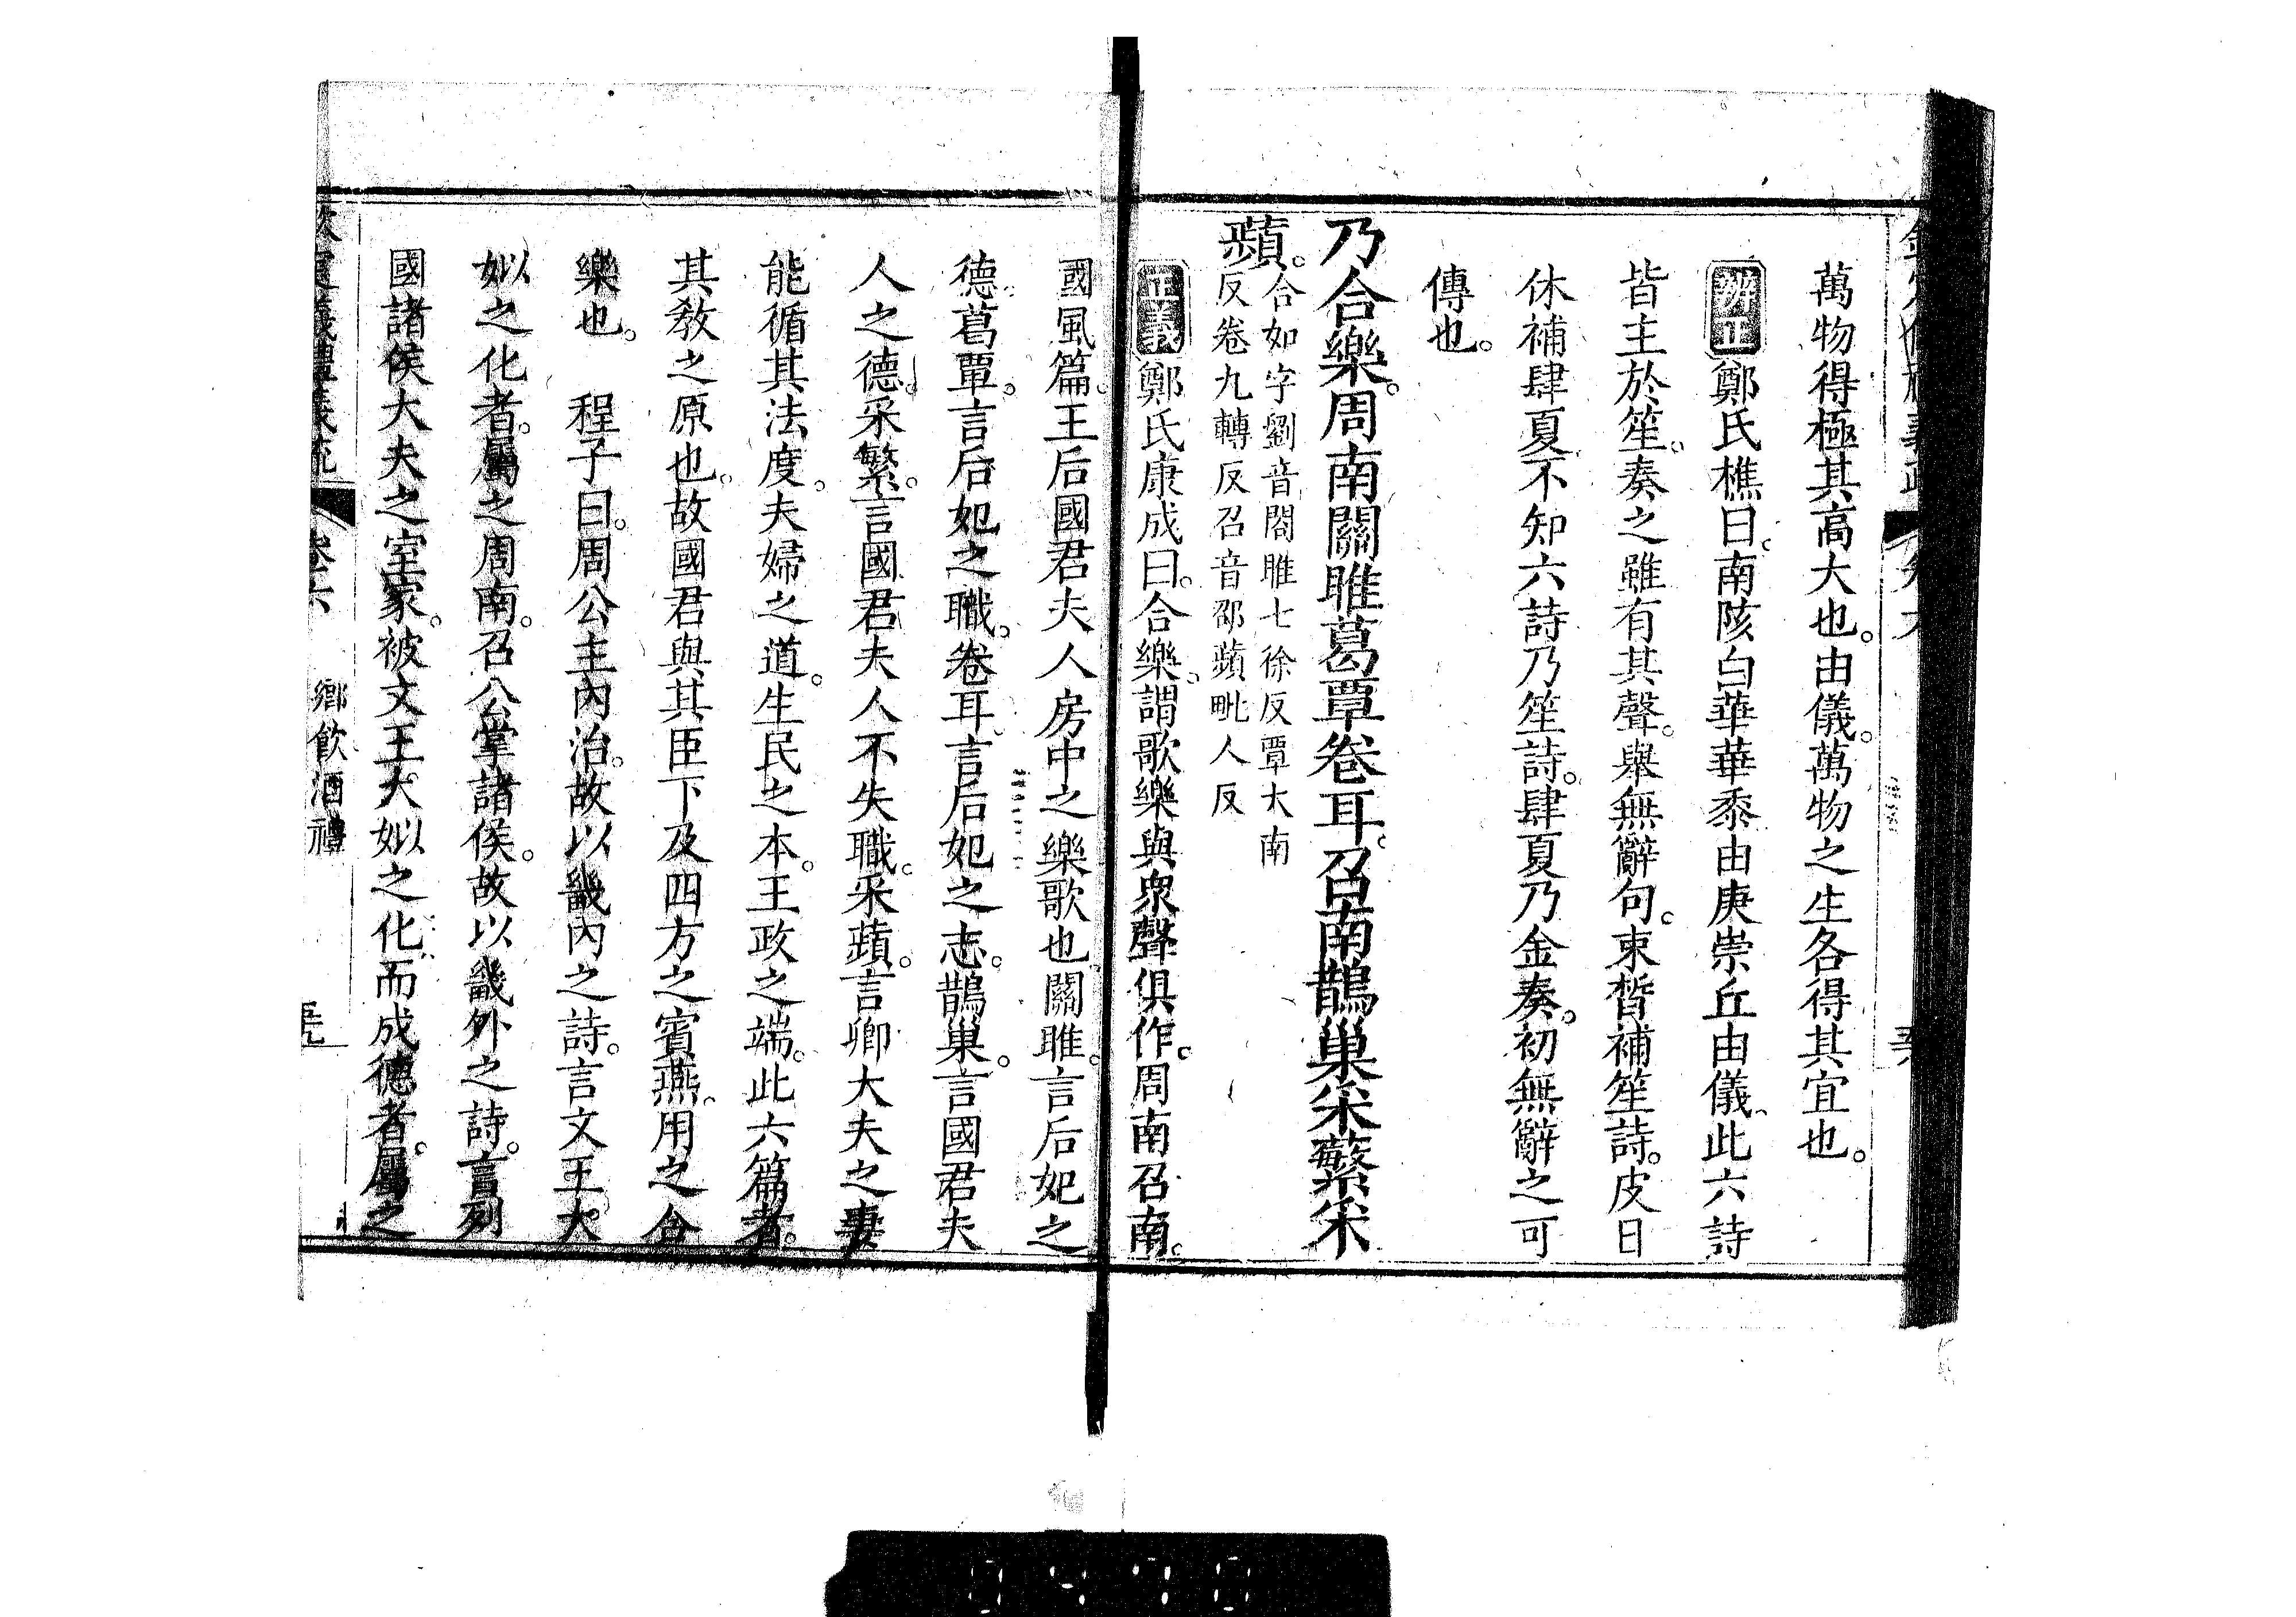 萬物得極其高大也。由儀。萬物之生各得其宜也。
辨正 鄭氏樵曰。南陔白華華黍由庚崇丘由儀。此六詩
皆主於笙。奏之雖有其聲。舉無辭句。束皙補笙詩。皮日
休補肆夏。不知六詩乃笙詩。肆夏乃金奏。初無辭之可
傳也。
乃合樂。周南關雎葛覃卷耳。召南鵲巢采蘩采
蘋。
合如字劉音閤雎七徐反覃大南
反卷九轉反召音邵蘋毗人反
正義 鄭氏康成曰。合樂。謂歌樂與衆聲俱作。周南召南。
國風篇。王后國君夫人房中之樂歌也。關雎。言后妃之
德。葛覃。言后妃之職。卷耳。言后妃之志。鵲巢。言國君夫
人之德。采蘩。言國君夫人不失職。采蘋。言卿大夫之妻
能循其法度。夫婦之道。生民之本。王政之端。此六篇者。
其敎之原也。故國君與其臣下及四方之賓燕。用之合
樂也。　程子曰。周公主內治。故以畿內之詩。言文王大
姒之化者。屬之周南。召公掌諸侯。故以畿外之詩。言列
國諸侯大夫之室家。被文王大姒之化而成德者。屬之
儀禮義疏 卷六 鄉飮酒禮